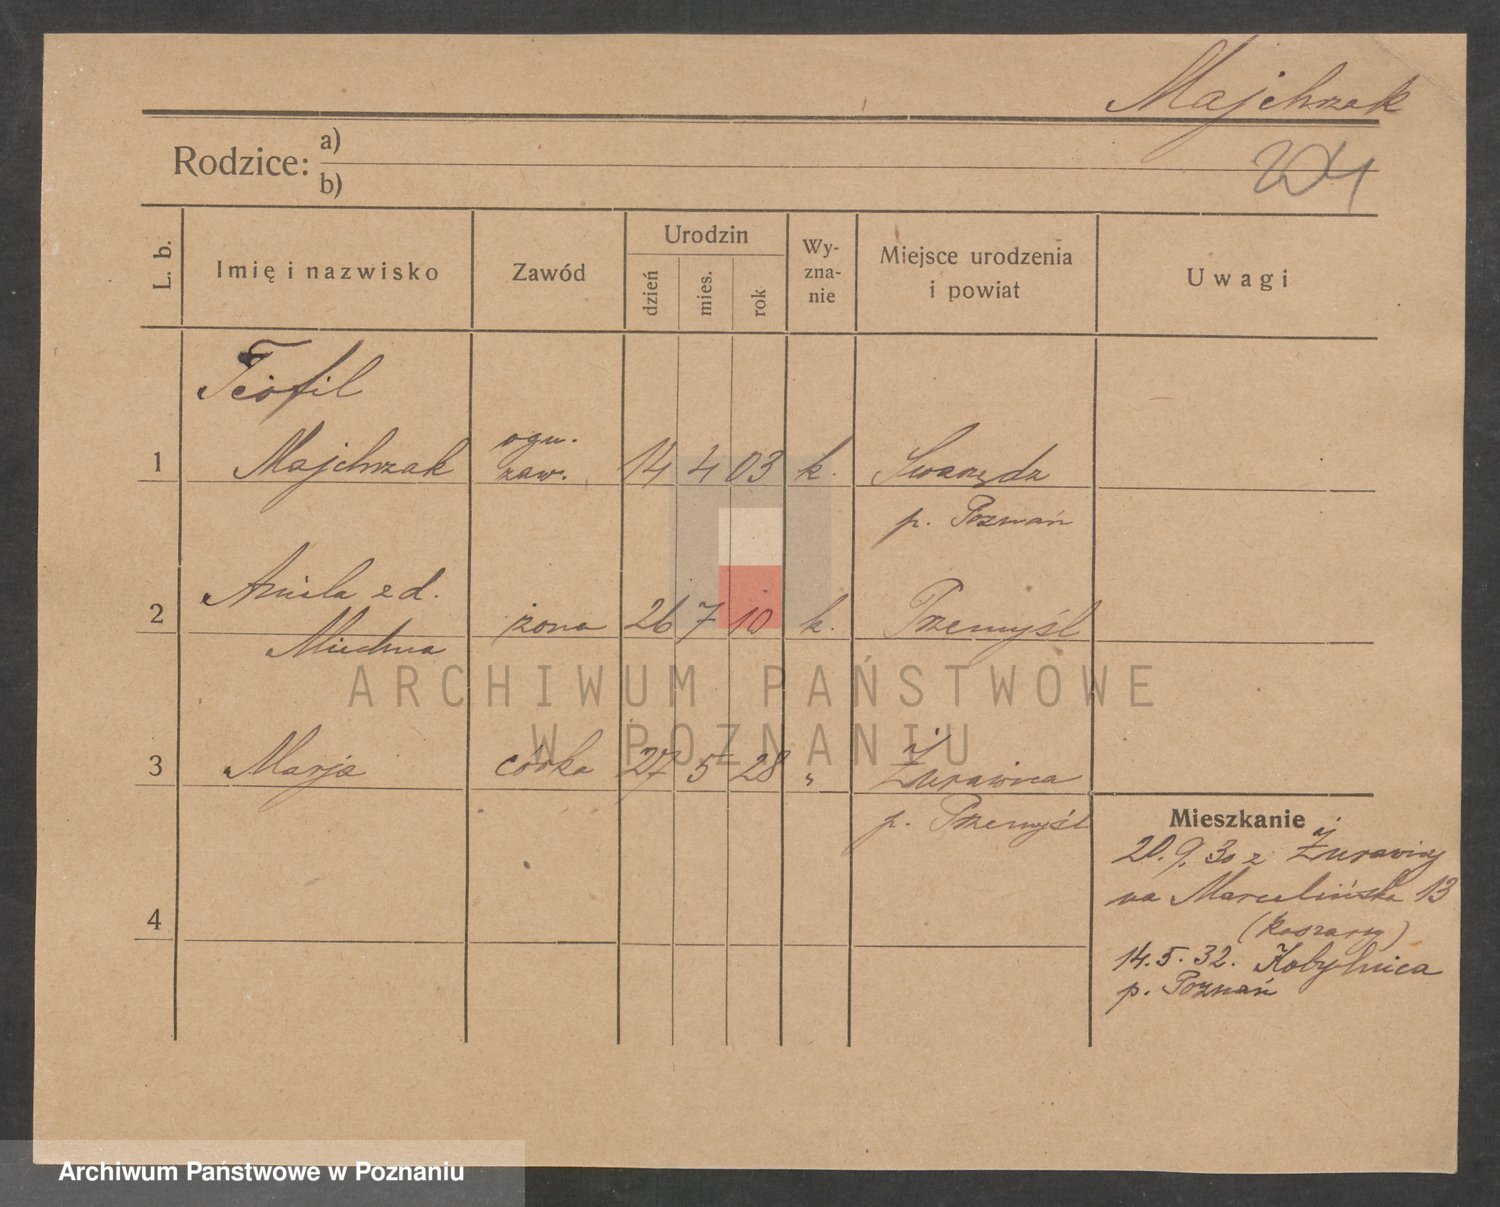 Majchrzak
Rodzice: a)
b)
L. b.
Imię i nazwisko
Zawód
Urodzin
dzień
mies.
rok
Wy-
zna-
nie
Miejsce urodzenia
i powiat
Uwagi
Teofil
1 Majchrzak ogn. zaw. 14 4 03 k. Swarzędz
p. Poznań
Aniela z d.
2 Miechna żona 26 7 10 k. Przemyśl
3 Marja córka 27 5 28 „ Żurawica
p. Przemyśl
4
Mieszkanie
20. 9. 30 z Żurawicy
na Marcelińska 13
(koszary)
14. 5. 32. Kobylnica
p. Poznań
ARCHIWUM PAŃSTWOWE
W POZNANIU
Archiwum Państwowe w Poznaniu